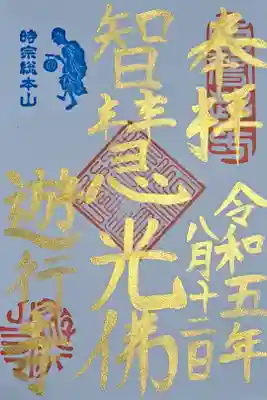 奉拝
令和五年
八月十二日
智慧光佛
遊行寺
時宗総本山